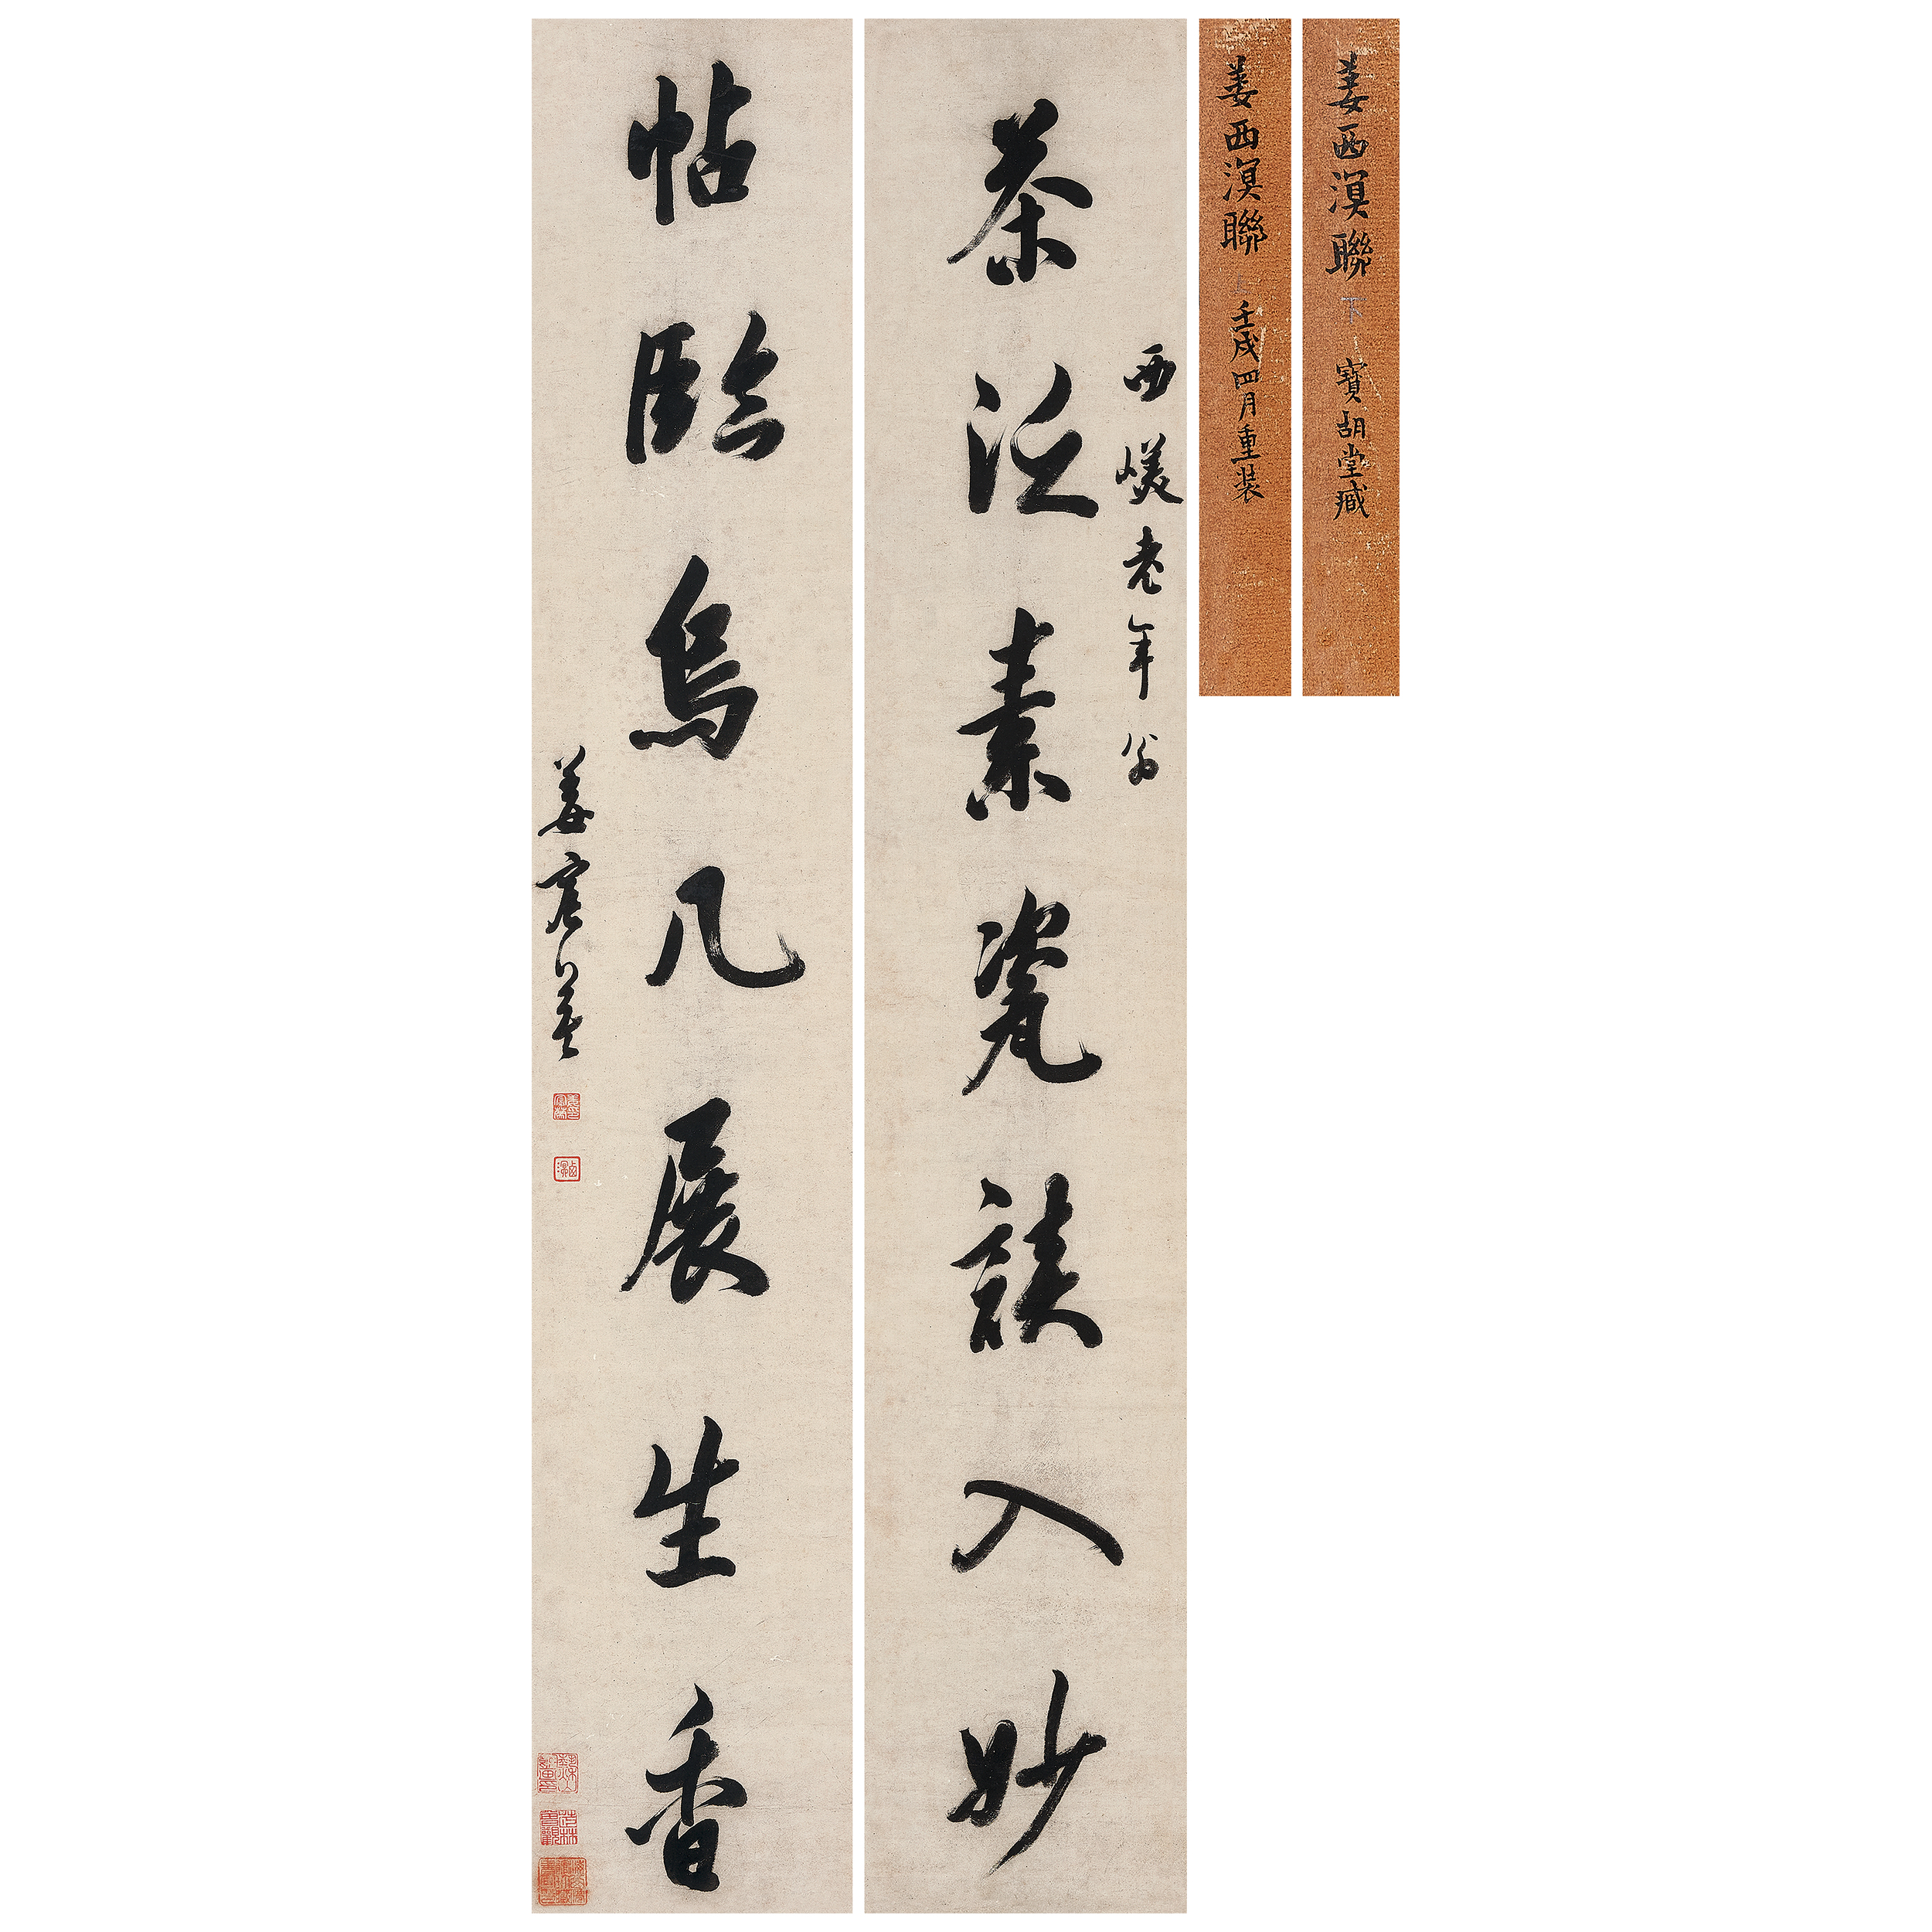 姜西溟聯 下 寶胡堂臧
姜西溟聯 上 壬戌四月重装
西崖老年翁
茶泛素瓷談入妙
帖臨烏几展生香
姜宸英